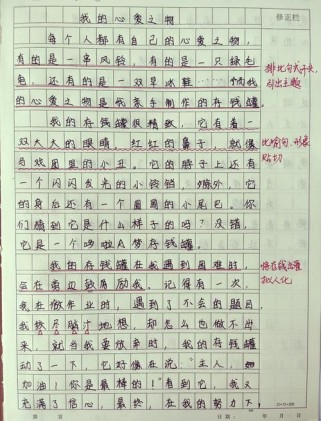 我的心爱之物
修正栏
每个人都有自己的心爱之物，
有的是一串风铃，有的是一只绿毛
龟，还有的是一双旱冰鞋……而我
的心爱之物是我亲手制作的存钱罐。
排比句式开头，
引出主题
我的存钱罐很精致，它有着一
双大大的眼睛。红红的鼻子，就像
马戏团里的小丑。它的脖子上还有
一个闪闪发光的小铃铛，除外，它
的身后还有一个圆圆的小尾巴。你
们猜到它是什么样子的吗？没错，
它是一个哆啦A梦存钱罐。
比喻句，形象
贴切
我的存钱罐在我遇到困难时，
会在旁边鼓励我。记得有一次，
我在做作业时，遇到了不会的题目，
我绞尽脑汁地想，却怎么也做不出
来，就当我要放弃时，我的存钱罐
动了一下，它好像在说：“主人，
加油！你是最棒的！”看到它，我又
充满了信心，最终，在我的努力下
将存钱罐
拟人化